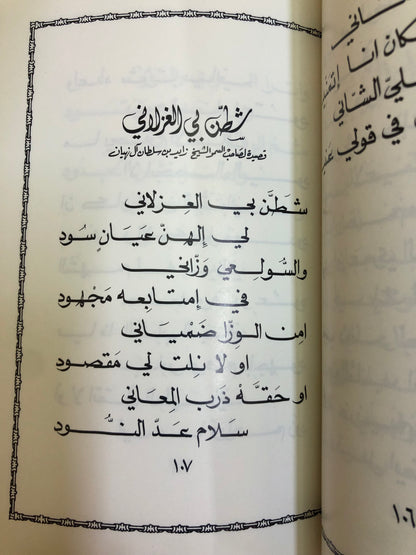 شطن بي الغزلاني
قصيدة لصاحب السمو الشيخ زايد بن سلطان آل نهيان
شطَنَّ بي الغِزلاني
لي إلهنْ عيَانٍ سود
والسُّولعي وَزَّاني
في إمتابعه مَجْهود
امن الوزا ضَمْياني
او لا نِلت لي مَقصود
او حَقّهْ ذَرب المِعاني
سَلام عَدّ النُّود
١٠٧
ـاني
كان انا
ليّ الشّاني
في قولي
١٠٦